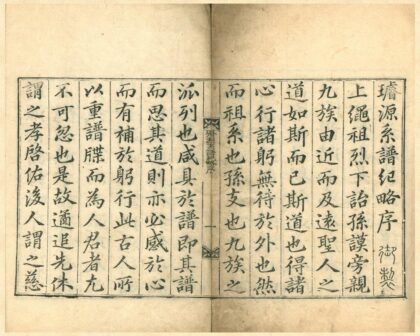 璿源系譜紀略序 御製
上繩祖烈下詒孫謨旁親
九族由近而及遠聖人之
道如斯而已斯道也得諸
心行諸躬無待於外也然
而祖系也孫支也九族之
序 一
派列也咸具於譜即其譜
而思其道則亦必感於心
而有補於躬行此古人所
以重譜牒而為人君者尤
不可忽也是故遹追先休
謂之孝啓佑後人謂之慈